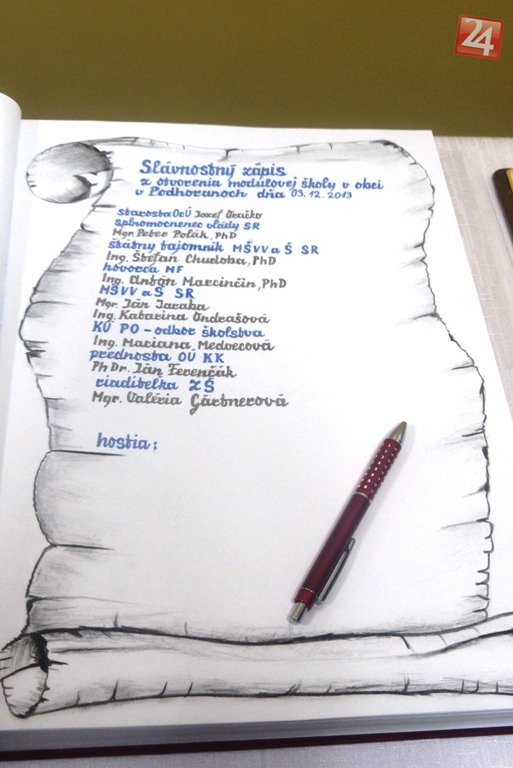 24
Slávnostný zápis
z otvorenia modulovej školy v obci
v Podhoranoch dňa 03.12.2013
starosta OcÚ Jozef Oračko
splnomocnenec vlády SR
Mgr. Peter Polák, PhD
štátny tajomník MŠVV a Š SR
Ing. Štefan Chudoba, PhD
hovorca MF
Ing. Anton Marcinčin, PhD
MŠVV a Š SR
Mgr. Ján Jaraba
Ing. Katarína Ondrašová
KÚ PO - odbor školstva
Ing. Mariana Medverová
prednosta OÚ KK
PhDr. Ján Ferenčák
riaditelka ZŠ
Mgr. Valéria Gärtnerová
hostia: